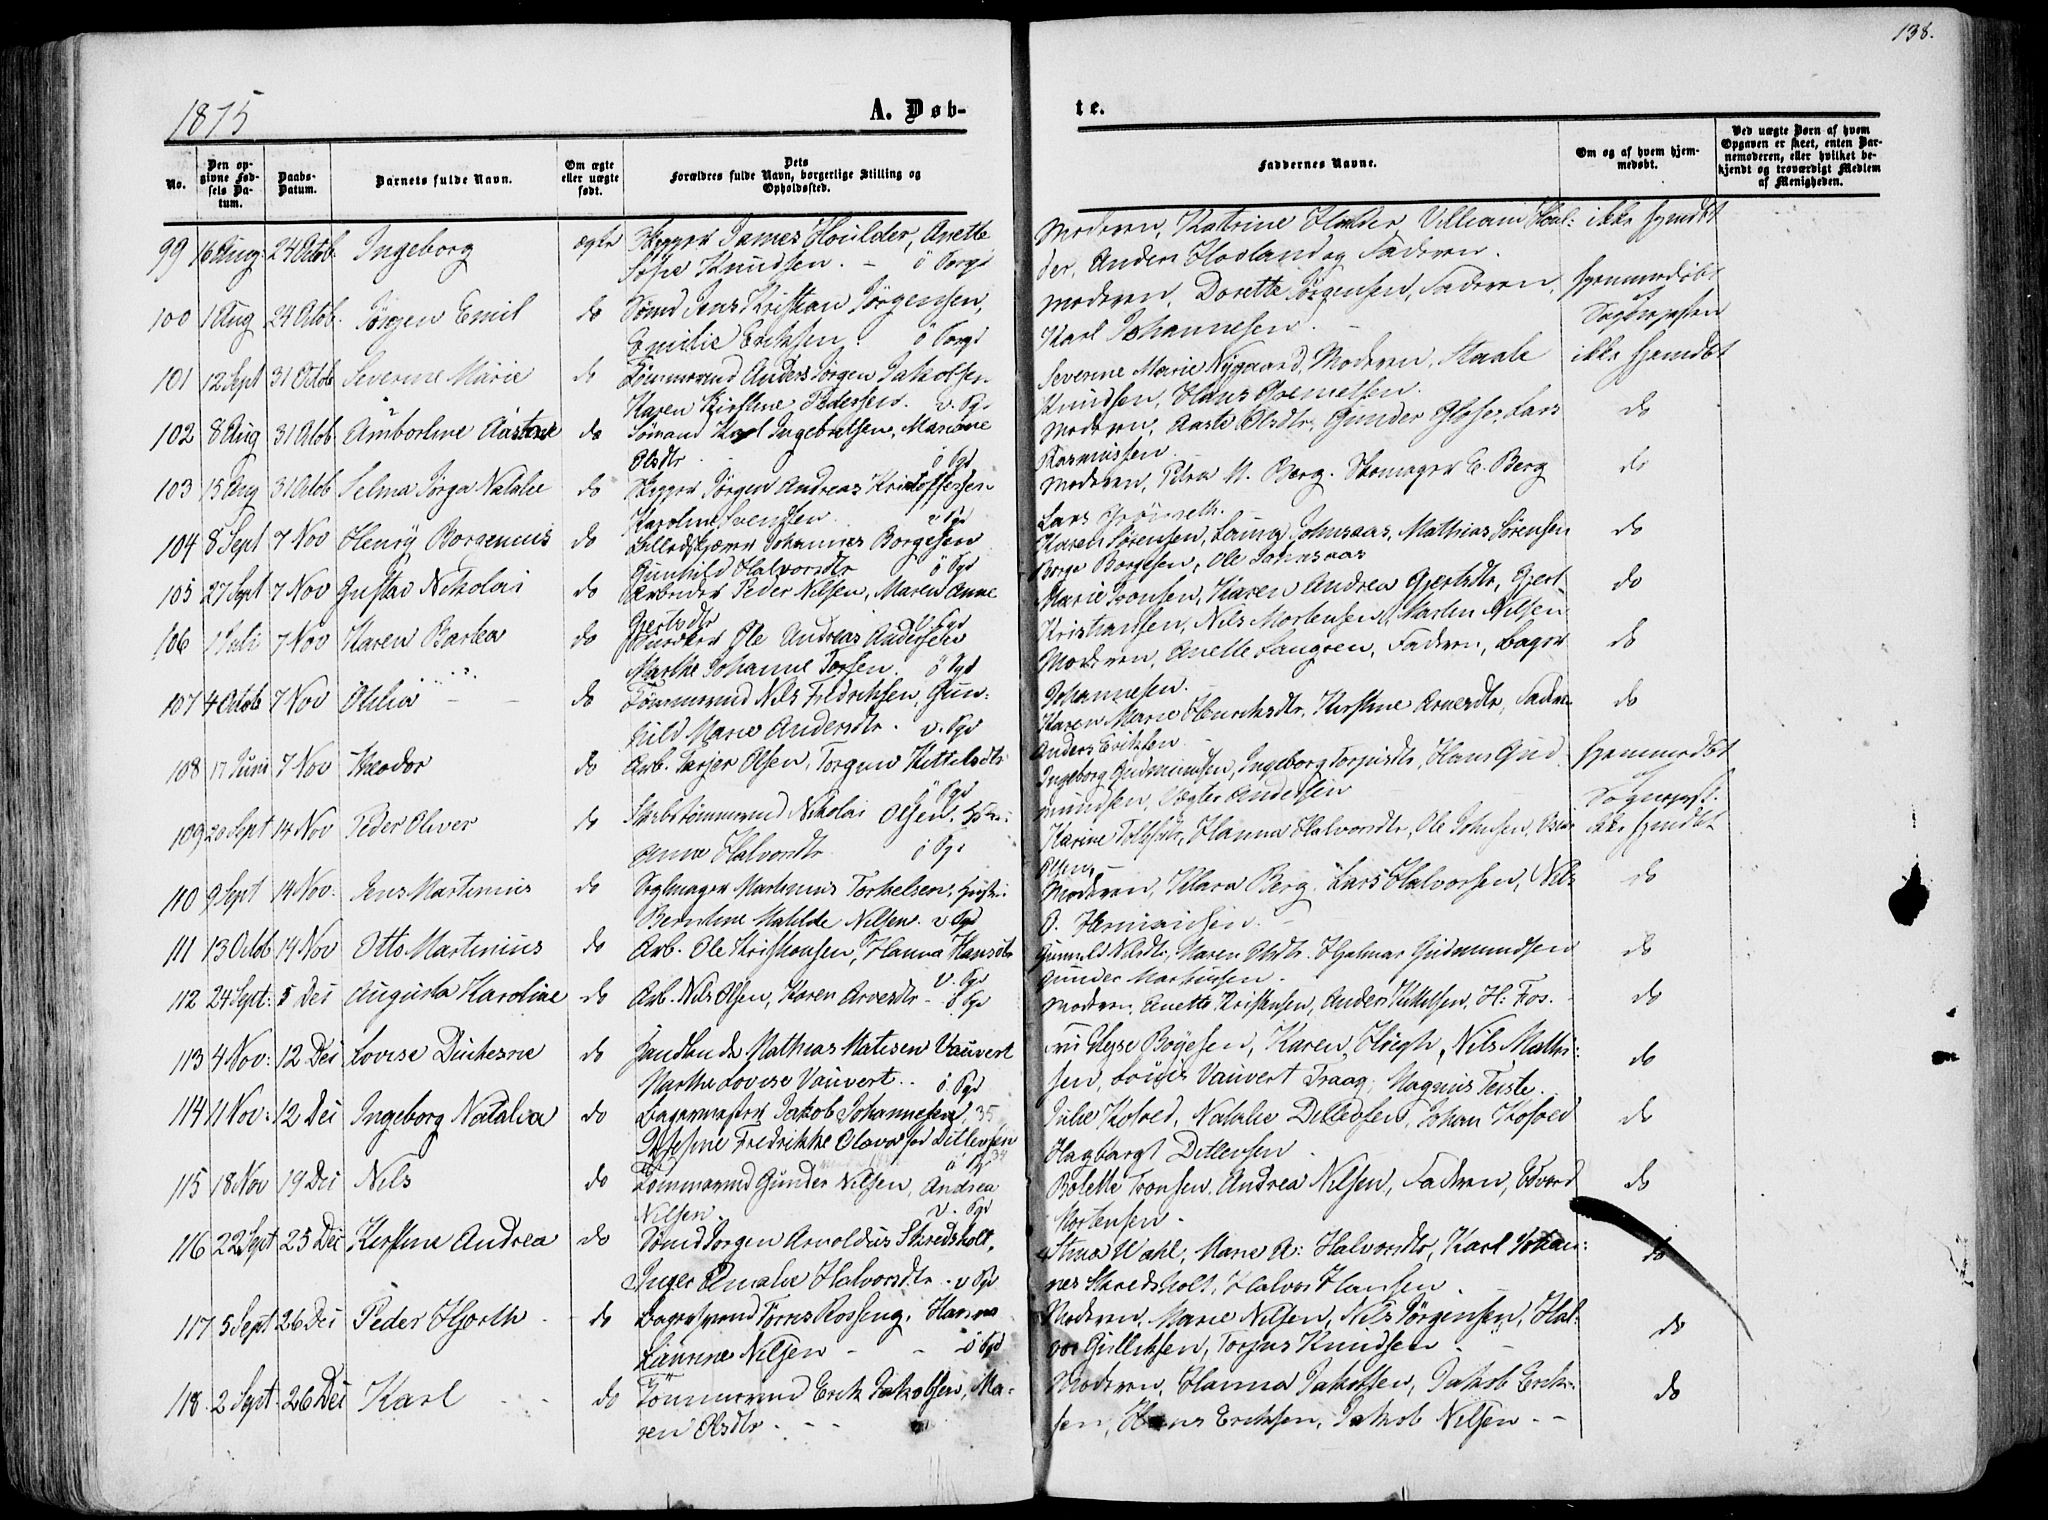 138.
1875
A. Døb-
te.
No.
Den op-
givne Fød-
sels Da-
tum.
Daabs-
Datum.
Barnets fulde Navn.
Om ægte
eller uægte
født.
Dets
Forældres fulde Navn, borgerlige Stilling og
Opholdssted.
Faddernes Navne.
Om og af hvem hjem-
medøbt.
Ved uægte Børn af hvem
Opgaven er skeet, enten Bar-
nemoderen, eller hvilket be-
kjendt og troværdigt Medlem
af Menigheden.
99 16 Aug 24 Octob. Ingeborg ægte Skipper James Houlder, Anette
Sofie Knudsen. - ö Porsgr
Moderen, Katrine Holder, Villiam Houl- ikke hjemdbt
der, Anders Hovland og Faderen.
100 1 Aug 24 Octob. Jörgen Emil do Sömd Jens Kristian Jörgensen,
Emilie Eriksen. ö Porsgr
Moderen, Dorette Jörgensen, Faderen, hjemmedöbt
Karl Johannesen. - Sognepresten
101 12 Sept 31 Octob Severine Marie do Tömmermd Anders Jörgen Jakobsen
Karen Kirstine Pedersen. v. Pgr
Severine Marie Nygaard, Moderen, Staale ikke hjemdbt
Knudsen, Hans
102 8 Aug 31 Octob Amborline Aastine do Sömand Karl Ingebretsen, Mariane
Olsdtr ö Pgr
Moderen, Aaste Olsdtr, Gunder Lars do
Rasmussen.
103 15 Aug 31 Octob Selma Jörga Natalie do Skipper Jörgen Andreas Kristoffersen
Karoline Svendsen v Pgr
Moderen, Petra N. Berg. Skomager E. Berg do
Lars
104 8 Sept 7 Nov Henry Borgenius do Johannes Borgesen
Gunhild Halvorsdtr ö Pgr
Karen Sørensen, Mathias Sørensen do
Borge Borgesen, Ole
105 27 Sept 7 Nov Gustav Nikolai do Arbeider Peder Nilsen, Maren Anne
Gjertsdtr v. Pgr
Marie Tronsen, Karen Andrea Gjertsdtr, Gjert do
Kristiansen, Nils Mortensen, Martin Nilsen
106 1 Juli 7 Nov Karen Bartea do Ole Andreas Andersen
Marthe Johanne Torsen. ö Pgr
Moderen, Anette Langren, Faderen, Bager do
Johannesen.
107 4 Octob 7 Nov Otilia - - do Tömmermd Nils Fredriksen, Gun-
hild Marie Andersdtr. v. Pgr
Karen Marie Henriksdtr, Kirstine Arnesdtr, Faderen do
Anders Eriksen
108 17 Juni 7 Nov Theodor do Arb. Tarjer Olsen, Torgun Kittelsdtr
ö Pgr
Ingeborg Gudmundsen, Ingeborg Torjusdtr, Hans Gud- hjemmedbt
mundsen, Andersen Sognepr.
109 20 Sept 14 Nov Peder Oliver do Skibstömmermd Nikolai Olsen,
Anna Halvorsdtr ö Pgr
Karine Tollefsdtr, Hanna Halvorsdtr, Ole Johnsen, ikke hjemdbt
Olsen,
110 9 Sept 14 Nov. Jens Martinius do Seglmager Martinius Torkelsen,
Berntine Matilde Nilsen. v Pgr
Moderen, Klara Berg, Lars Halvorsen, Nils do
O. Hermansen. -
111 13 Octob 14 Nov Otto Martinius do Arb. Ole Kristiansen, Hanna Hansdtr
v. Pgr
Gunnild Nilsdtr, Maren Olsdtr. Hjalmar Gudmundsen do
Gunder Martinsen.
112 24 Sept: 5 Dec Augusta Karoline do Arb. Nils Olsen, Karen Arnesdtr - ö Pgr
Moderen, Anette Kristensen, Anders Kittelsen, H: Fos. do
113 4 Nov: 12 Dec Lovise Duchesne do Mathias Matisen Vauvert
Marthe Lovise Vauvert. ö. Pgr
Fru Elyse Boyesen, Karen Høegh, Nils Mathi- do
sen, Louis Vauvert Traag, Magnus Teiste.
114 11 Nov: 12 Dec Ingeborg Natalia do Bagermester Jakob Johannesen, 35
Josefine Fredrikke Olava fød Ditlevsen
ö Pgr 34
Julie Kofoed, Natalie Ditlevsen, Johan Kofoed do
Hagbart Ditlevsen
115 18 Nov 19 Dec Nils do Tömmermd Gunder Nilsen, Andrea
Nilsen. v. Pgr
Bolette Tronsen, Andrea Nilsen, Faderen, Edvard do
Mortensen.
116 22 Sept 25 Dec Kirstine Andrea do Sömd Jörgen Arnoldus Skredsholt,
Inger Amalie Halvorsdtr. v Pgr
Stina Wahl, Marie A: Halvorsdtr, Karl Johan- do
nes Skredsholt, Halvor Hansen
117 5 Sept 26 Dec Peder Hjorth do Bagersvend Törres Rosseng, Hanna
Laurine Nilsen - - ö Pgr
Moderen, Marie Nilsen, Nils Jörgensen, Hal- do
vor Gulliksen, Torjus Knudsen
118 2 Sept 26 Dec Karl - - do Tömmermd Erik Jakobsen, Ma-
ren Olsdtr. - - -
Moderen, Hanna Jakobsen, Jakob Erik- do
sen, Hans Eriksen, Jakob Nilsen - -